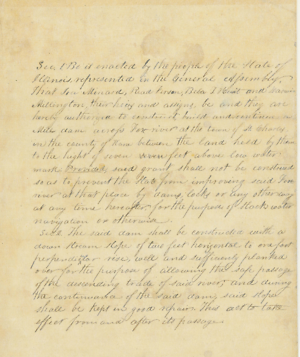 Sec 1 Be it enacted by the people of the State of
Illinois represented in the General Assembly,
That Ira Minard, Read Ferson, B. T. Hunt and
their heirs and assigns, be and they are
hereby authorized to construct build and continue a
Mill dam across Fox river at the town of St Charles
in the county of Kane between the land held by them
to the hight of seven feet above low water
mark Provided said grant shall not be construed
so as to prevent the State from improving said Fox
river at that place by dams, locks or any other way
at any time hereafter for the purpose of slack water
navigation or otherwise.
Sec 2 The said dam shall be constructed with a
down stream slope of two feet horizontal to one foot
perpendicular rise, well and sufficiently planked
over for the purpose of allowing the safe passage
of the descending trade of said river, and during
the continuance of the said dam, said slope
shall be kept in good repair This act to take
effect from and after its passage